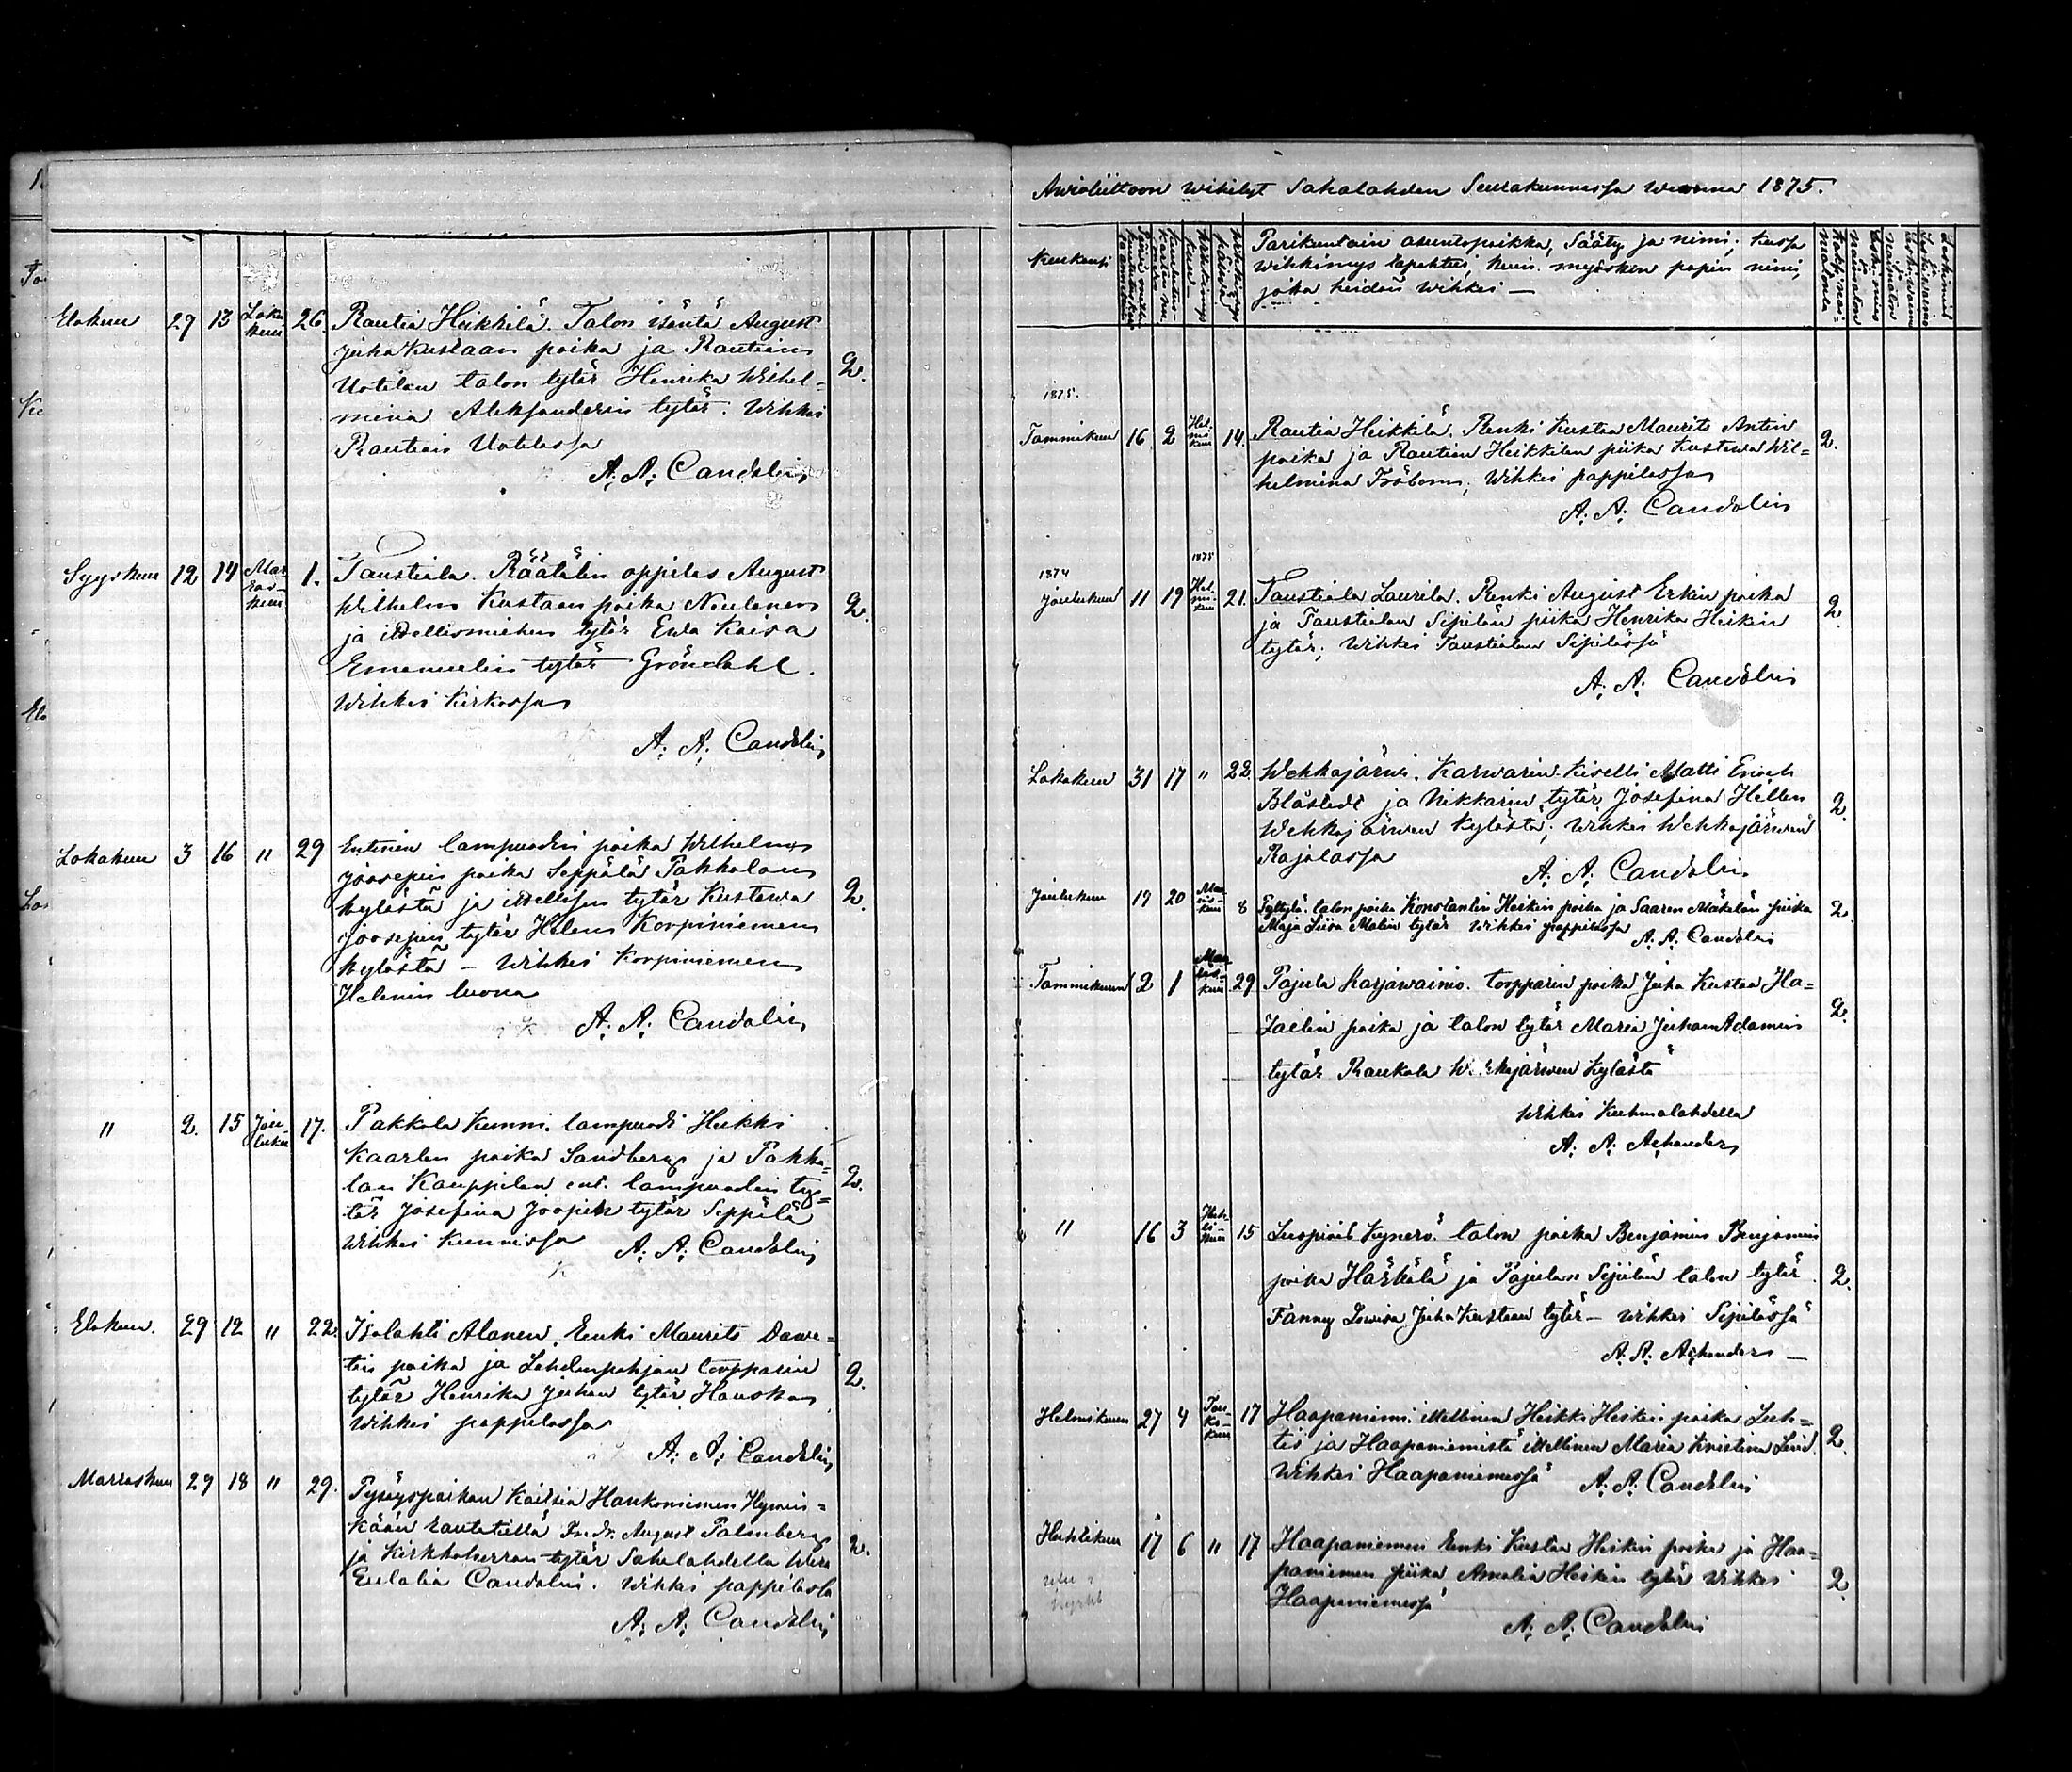 Elokuu 29 13 Loka-
kuu 26. Rautia Heikkilä. Talon isäntä August
Juha Kustaan poika ja Rautian
Uotilan talon tytär Henrika Wilhel-
mina Aleksanderin tytär. Wihki
Rautian Uotilassa 2.
A. A. Candolin
Syyskuu 12 14 Mar-
ras-
kuu 1. Taustiala. Räätälin oppilas August
Wilhelm Kustaan poika Neulanen
ja itellismiehen tytär Ewa Kaisa
Emanuelin tytär Gröndahl.
Wihki Kirkossa 2.
A. A. Candolin
Lokakuu 3 16 " 29 Entinen lampuodin poika Wilhelm
Joosepin poika Seppälä Pakkalan
kylästä ja itellisen tytär Kustawa
Joosepin tytär Helen Korpiniemen
kylästä – Wihki Korpiniemen
Helenin luona 2.
A. A. Candolin
" 2. 15 Jou-
lukuu 17. Pakkala Kunni. lampuodi Heikki
Kaarlen poika Sandberg ja Pakka-
lan Kauppilan ent. lampuodin ty-
tär Josefina Joosepin tytär Seppälä
Wihki Kunnissa 2.
A. A. Candolin
Elokuu. 29 12 " 22. Isolahti Alanen. Renki Maurits Dawe-
tin poika ja Lihelmpohjan torpparin
tytär Henrika Juhan tytär Hauska
Wihki pappilassa 2.
A. A. Candolin
Marraskuu 29 18 " 29. Pysäyspaikan Kaitsia Hankoniemen Hywin-
kään rautatiellä Fredr. August Palmberg
ja Kirkkoherran tytär Sahalahdella Wera
Eulalia Candolin. Wihki pappilassa 2.
A. A. Candolin
Awioliittoon wihityt Sahalahden Seurakunnassa wuonna 1875.
Kuukausi
Parikuntain asuntopaikka, Sääty ja nimi; kussa
wihkimys tapahtui, kuin myösken papin nimi,
joka heidän wihki —
1875.
Tammikuu 16 2 Hel-
mi-
kuu 14. Rautia Heikkilä. Renki Kustaa Maurits Antin
poika ja Rautian Heikkilan piika Kustawa Wil-
helmina Fröbom; Wihki pappilassa 2.
A. A. Candolin
1874 1875
Joulukuu 11 19 Hel-
mi-
kuu 21. Taustiala Laurila. Renki August Erkin poika
ja Taustialan Sipilän piika Henrika Heikin
tytär; Wihki Taustialan Sipilässä 2
A. A. Candolin
Lokakuu 31 17 " 28. Wehkajärwi. Karwarin Kiselli Matti Enoch
Blåstedt ja Nikkarin tytär Josefina Hellen
Wehkajärwen kylästä; Wihki Wehkajärwen
Rajalassa 2.
A. A. Candolin
Joulukuu 19 20 8 Pyttylä. talon poika Konstantin Heikin poika ja Saaren Mäkelän piika
Maja Liisa Matin tytär Wihki pappilassa 2.
A. A. Candolin
Tammikuu 2 1 29 Pajula Karjawainio. torpparin poika Juha Kustaa Ha-
poika ja talon tytär Maria Juhan Adamin
tytär Raukola kylästä 2.
Wihki Kuhmalahdella
A. A. Achander
" 16 3 Huh-
ti-
kuu 15 talon poika Benjamin Benjamin
poika Härkälä ja Pajulan Sipilän talon tytär
Fanny Lowisa Juha Kustaan tytär – Wihki Sipilässä 2.
A. A. Achander —
Helmikuu 27 4 Tou-
ko-
kuu 17 Haapaniemi. itellinen Heikki Heikin poika Luh-
tis ja Haapaniemistä itellinen Maria Kristina Lind.
Wihki Haapaniemessä 2
A. A. Candolin
Huhtikuu 17 6 " 17 Haapaniemen Renki Kustaa Heikin poika ja Haa-
paniemen piika Amalia Heikin tytär Wihki
Haapaniemessä 2.
A. A. Candolin